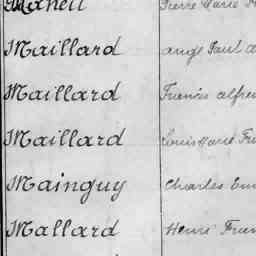 Pierre Marie
Maillard Ange Paul
Maillard Francis Alfre
Maillard Louis Marie
Mainguy Charles Em
Mallard Henri Fran